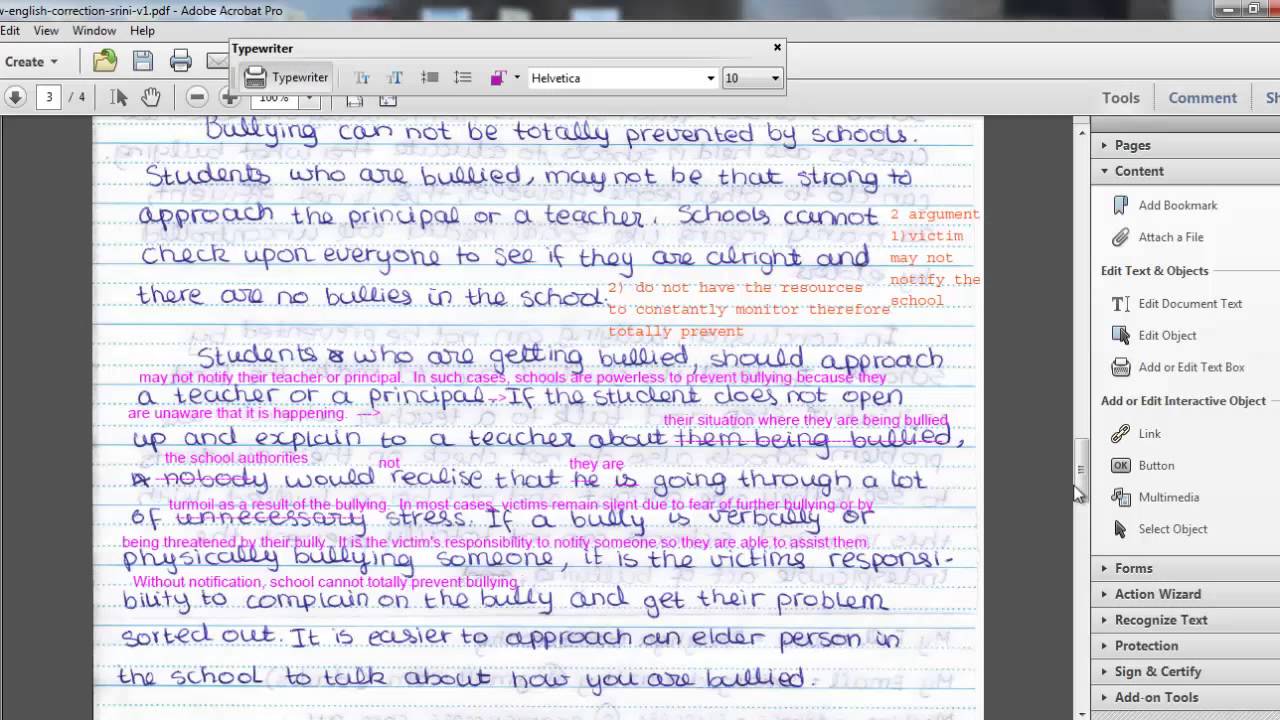 w-english-correction-srini-v1.pdf - Adobe Acrobat Pro
Edit View Window Help
Typewriter
Create
Typewriter Helvetica 10
3 / 4 100%
Tools Comment Sh
Bullying can not be totally prevented by schools.
Students who are bullied, may not be that strong to
approach the principal or a teacher. Schools cannot
check upon everyone to see if they are alright and
there are no bullies in the school.
2 argument
1)victim
may not
notify the
school
2) do not have the resources
to constantly monitor therefore
totally prevent
Students who are getting bullied, should approach
may not notify their teacher or principal. In such cases, schools are powerless to prevent bullying because they
a teacher or a principal. If the student does not open
are unaware that it is happening. --->
their situation where they are being bullied
up and explain to a teacher about them being bullied,
the school authorities not they are
nobody would realise that he is going through a lot
turmoil as a result of the bullying. In most cases, victims remain silent due to fear of further bullying or by
of unnecessary stress. If a bully is verbally or
being threatened by their bully. It is the victim's responsibility to notify someone so they are able to assist them.
physically bullying someone, it is the victims responsi-
Without notification, school cannot totally prevent bullying.
bility to complain on the bully and get their problem
sorted out. It is easier to approach an elder person in
the school to talk about how you are bullied.
Pages
Content
Add Bookmark
Attach a File
Edit Text & Objects
Edit Document Text
Edit Object
Add or Edit Text Box
Add or Edit Interactive Object
Link
OK Button
Multimedia
Select Object
Forms
Action Wizard
Recognize Text
Protection
Sign & Certify
Add-on Tools